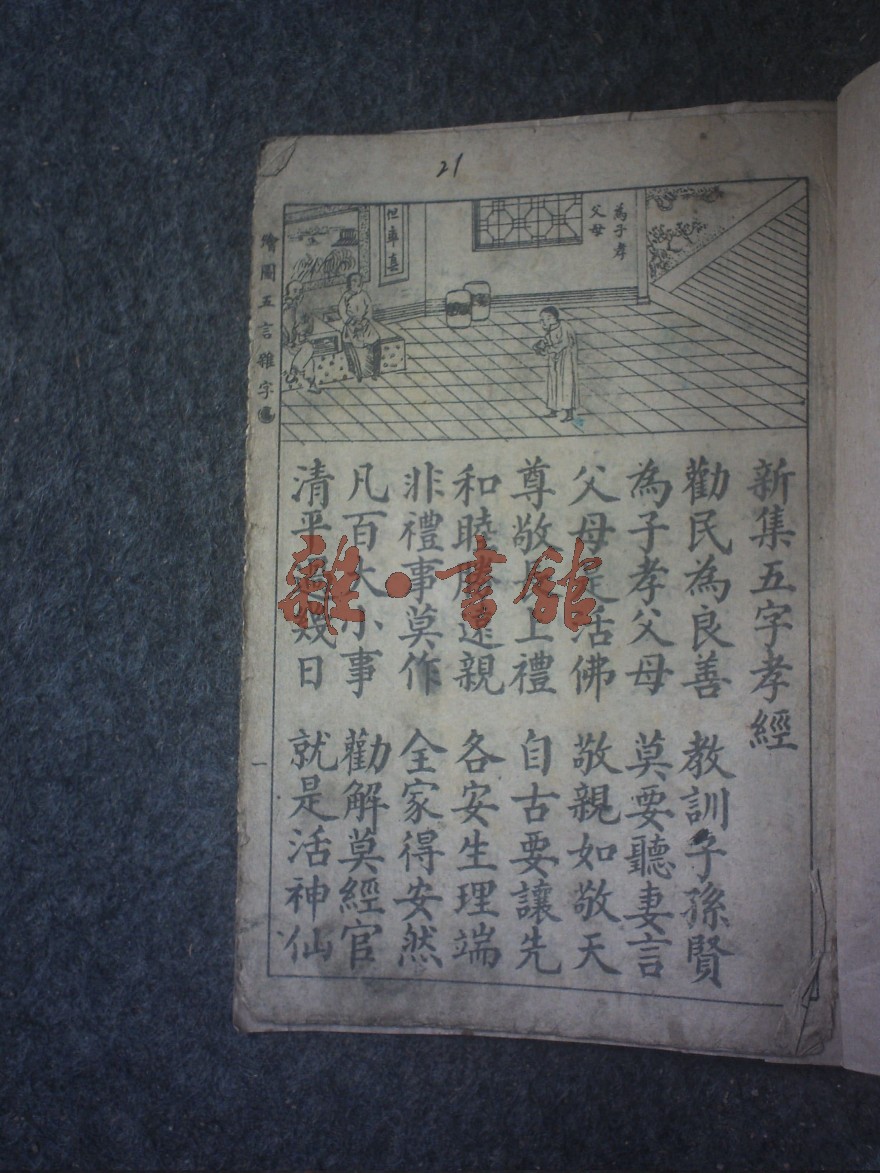 21
為子孝
父母
繪圖五言雜字
新集五字孝經
勸民為良善 教訓子孫賢
為子孝父母 莫要聽妻言
父母是活佛 敬親如敬天
尊敬長上禮 自古要讓先
和睦隣遠親 各安生理端
非禮事莫作 全家得安然
凡百大小事 勸解莫經官
清平過幾日 就是活神仙
一
雜·書館